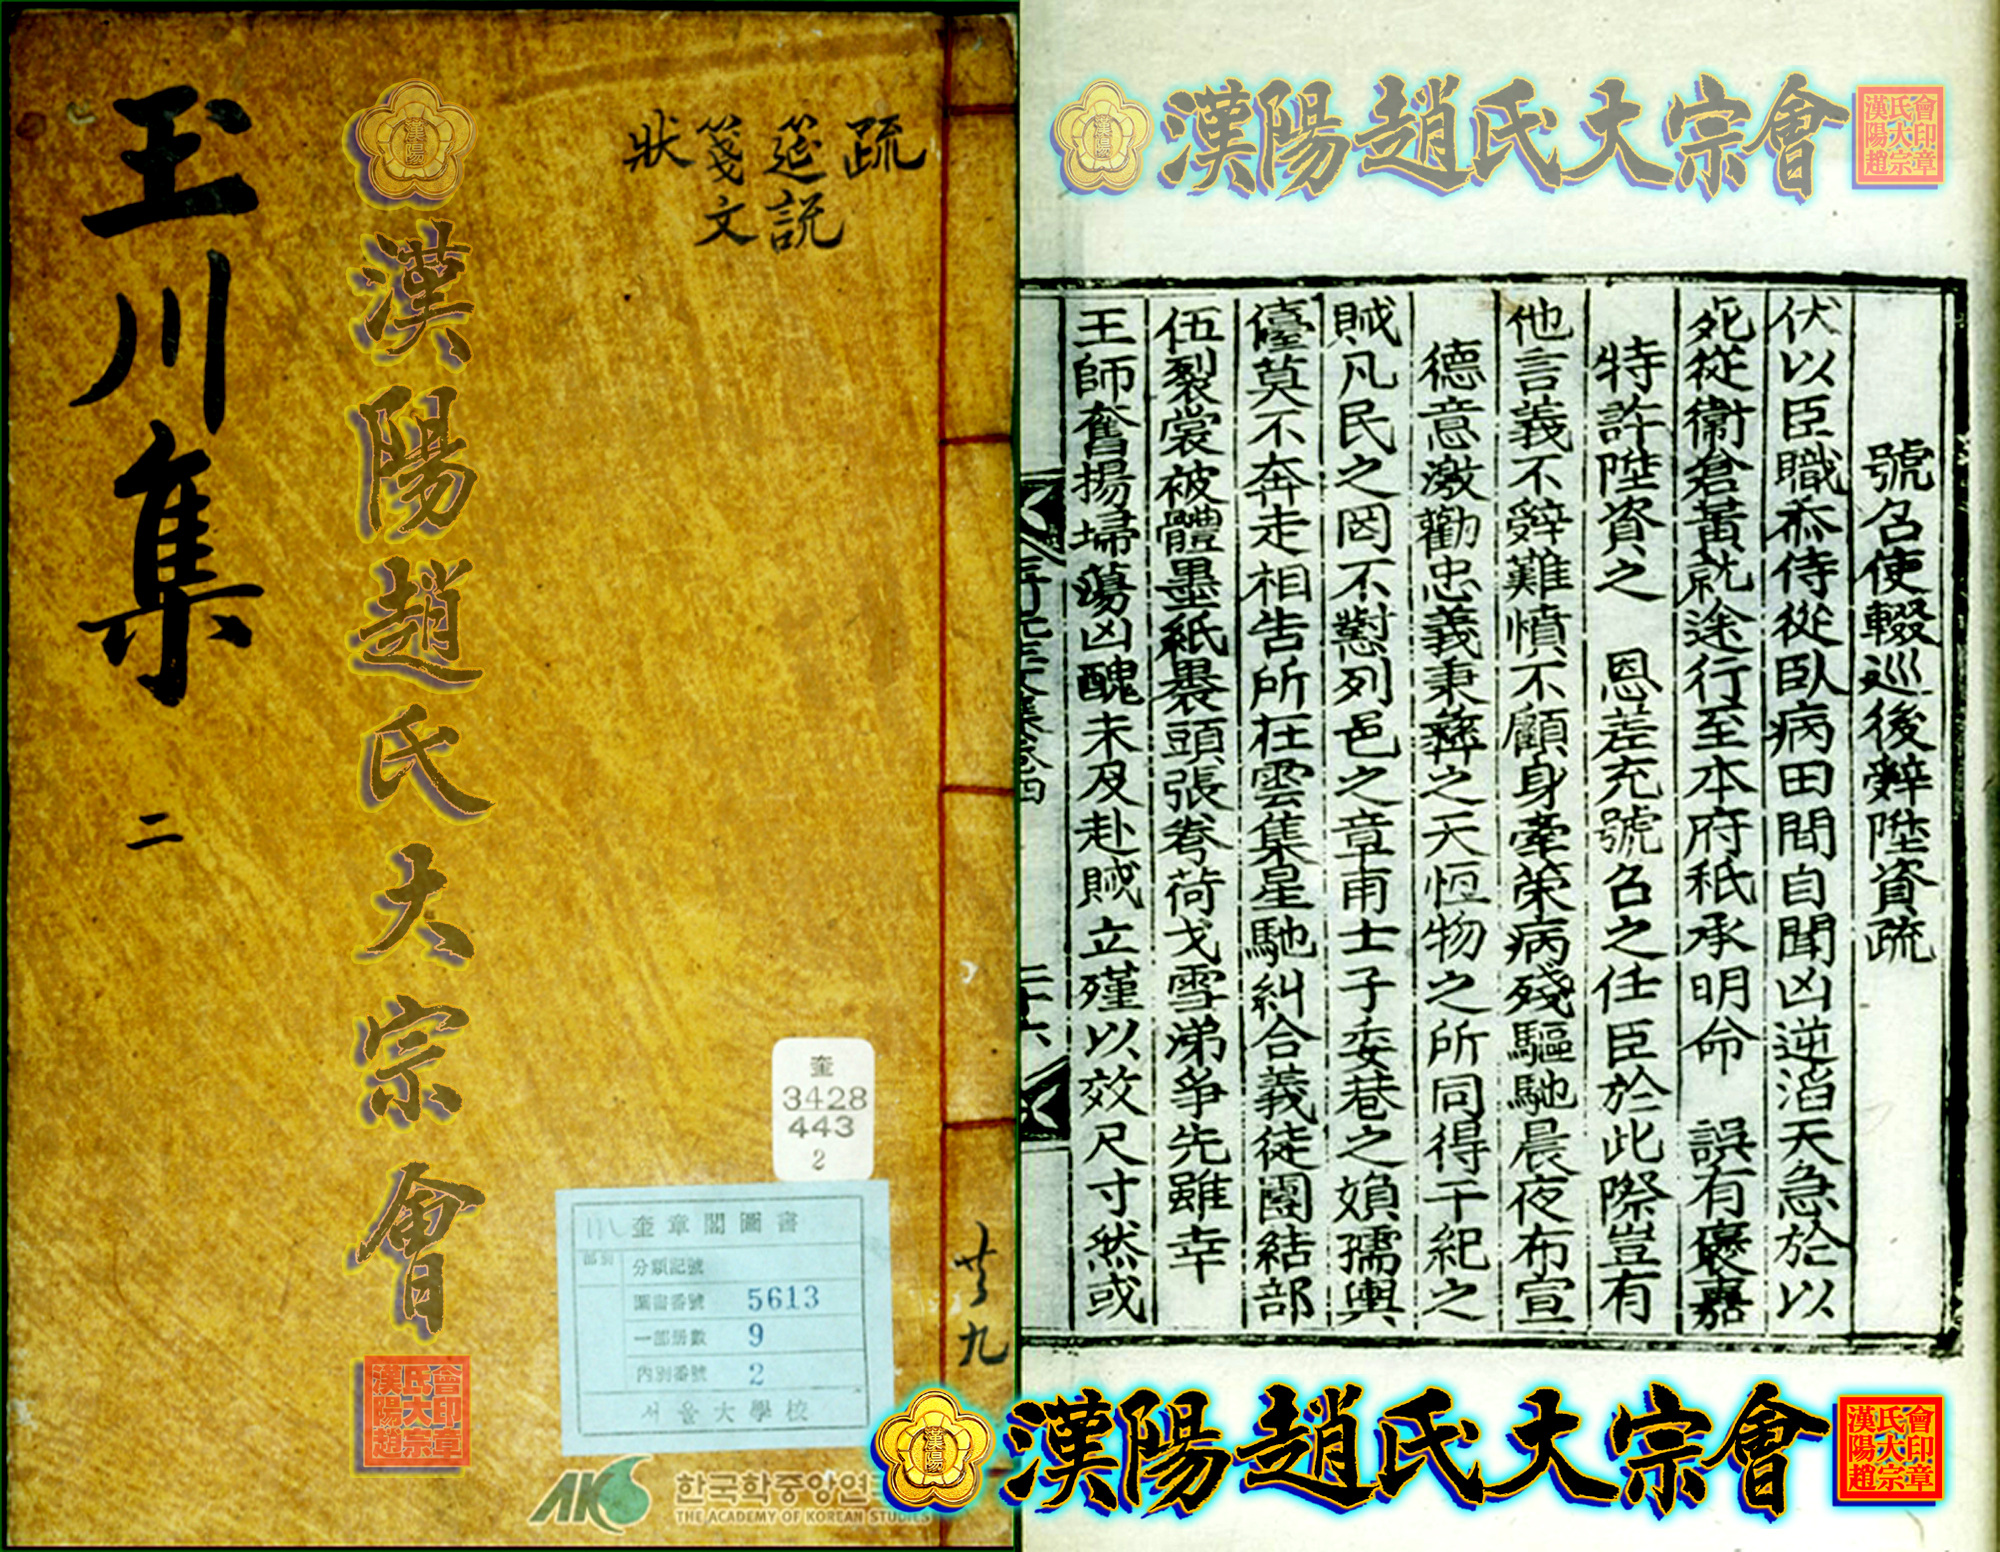 玉川集 二
疏
筵説
箋文
狀
漢陽趙氏大宗會
漢陽趙氏大宗會印章
奎
3428
443
2
奎章閣圖書
部別
分類記號
圖書番號 5613
一部冊數 9
內別番號 2
서울大學校
共九
한국학중앙연
THE ACADEMY OF KOREAN STUDIES
漢陽趙氏大宗會
漢陽趙氏大宗會印章
號召使輟巡後辭陞資疏
伏以臣職忝侍從臥病田間自聞凶逆滔天急於以
死從衛倉黃就途行至本府祇承明命 誤有褒嘉
特許陞資之 恩差充號召之任臣於此際豈有
他言義不辭難憤不顧身牽策病殘驅馳晨夜布宣
德意激勸忠義秉彝之天恒物之所同得干紀之
賊凡民之罔不懟列邑之章甫士子委巷之婦孺輿
儓莫不奔走相告所在雲集星馳糾合義徒團結部
伍裂裳被體墨紙裹頭張弮荷戈雪涕爭先雖幸
王師奮揚掃蕩凶醜未及赴賊立殣以效尺寸然或
漢陽趙氏大宗會
漢陽趙氏大宗會印章